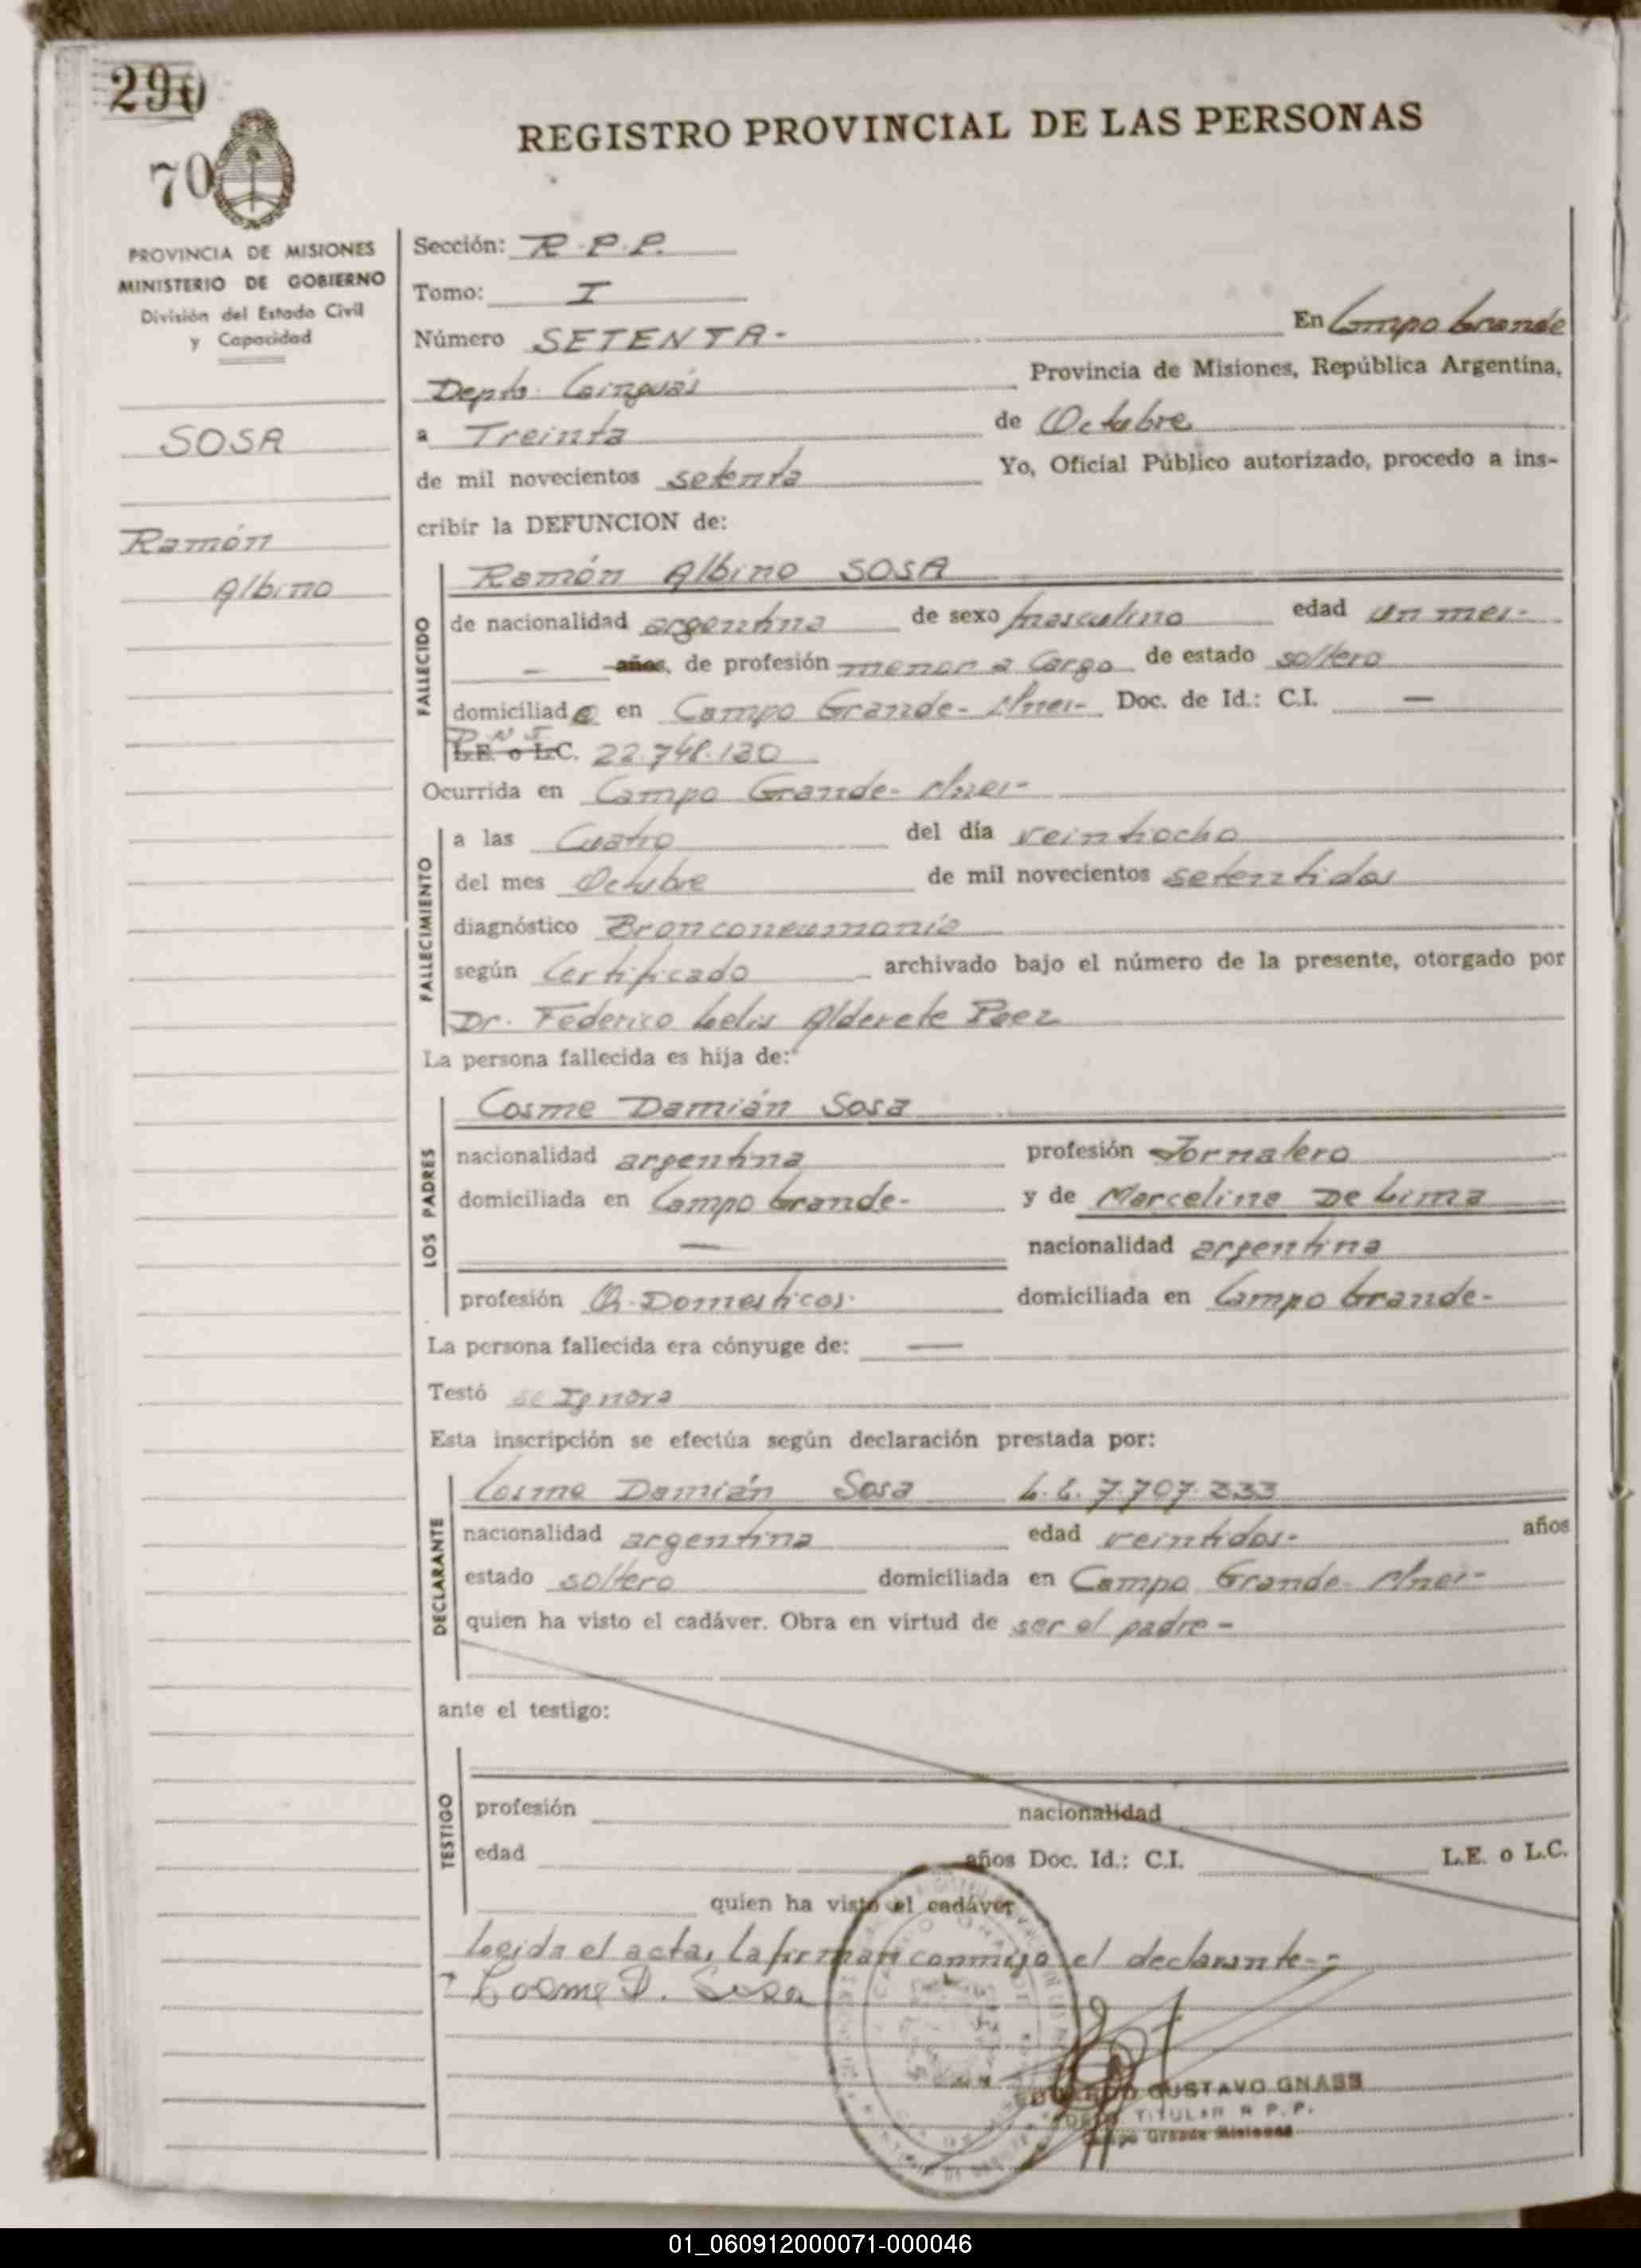 290
70
REGISTRO PROVINCIAL DE LAS PERSONAS
PROVINCIA DE MISIONES
MINISTERIO DE GOBIERNO
División del Estado Civil
y Capacidad
SOSA
Ramón
Albino
Sección: R.P.P.
Tomo: I
Número SETENTA- En Campo Grande
Depto. Cainguás Provincia de Misiones, República Argentina,
a Treinta de Octubre
de mil novecientos setenta Yo, Oficial Público autorizado, procedo a ins-
cribir la DEFUNCION de:
FALLECIDO
Ramón Albino SOSA
de nacionalidad argentina de sexo masculino edad un mes-
— años, de profesión menor a Cargo de estado soltero
domiciliado en Campo Grande- Mnes- Doc. de Id.: C.I. —
D N I
L.E. o L.C. 22.748.130
Ocurrida en Campo Grande- Mnes-
FALLECIMIENTO
a las Cuatro del día veintiocho
del mes Octubre de mil novecientos setentidos
diagnóstico Bronconeumonía
según Certificado archivado bajo el número de la presente, otorgado por
Dr. Federico Alderete Paez
La persona fallecida es hija de:
LOS PADRES
Cosme Damián Sosa
nacionalidad argentina profesión Jornalero
domiciliada en Campo Grande- y de Marcelina De Lima
— nacionalidad argentina
profesión Q. Domesticos. domiciliada en Campo Grande-
La persona fallecida era cónyuge de: —
Testó se Ignora
Esta inscripción se efectúa según declaración prestada por:
DECLARANTE
Cosme Damián Sosa L.E. 7.707.333
nacionalidad argentina edad veintidos- años
estado soltero domiciliada en Campo Grande- Mnes-
quien ha visto el cadáver. Obra en virtud de ser el padre-
ante el testigo:
TESTIGO
profesión nacionalidad
edad años Doc. Id.: C.I. L.E. o L.C.
quien ha visto el cadáver
Leida el acta, la firman conmigo el declarante-;
Cosme D. Sosa
GUSTAVO GNASS
TITULAR R P.P.
Campo Grande Misiones
01_060912000071-000046